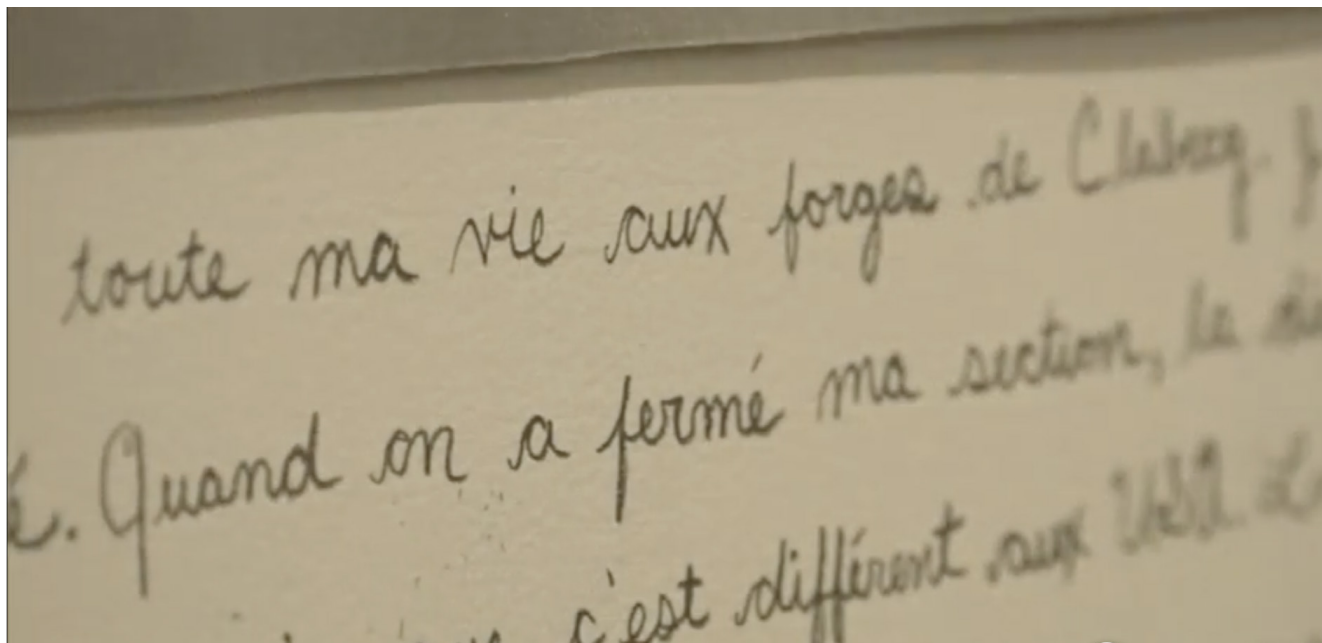 toute ma vie aux forges de Clabecq.
é. Quand on a fermé ma section, le
c'est différent aux USA